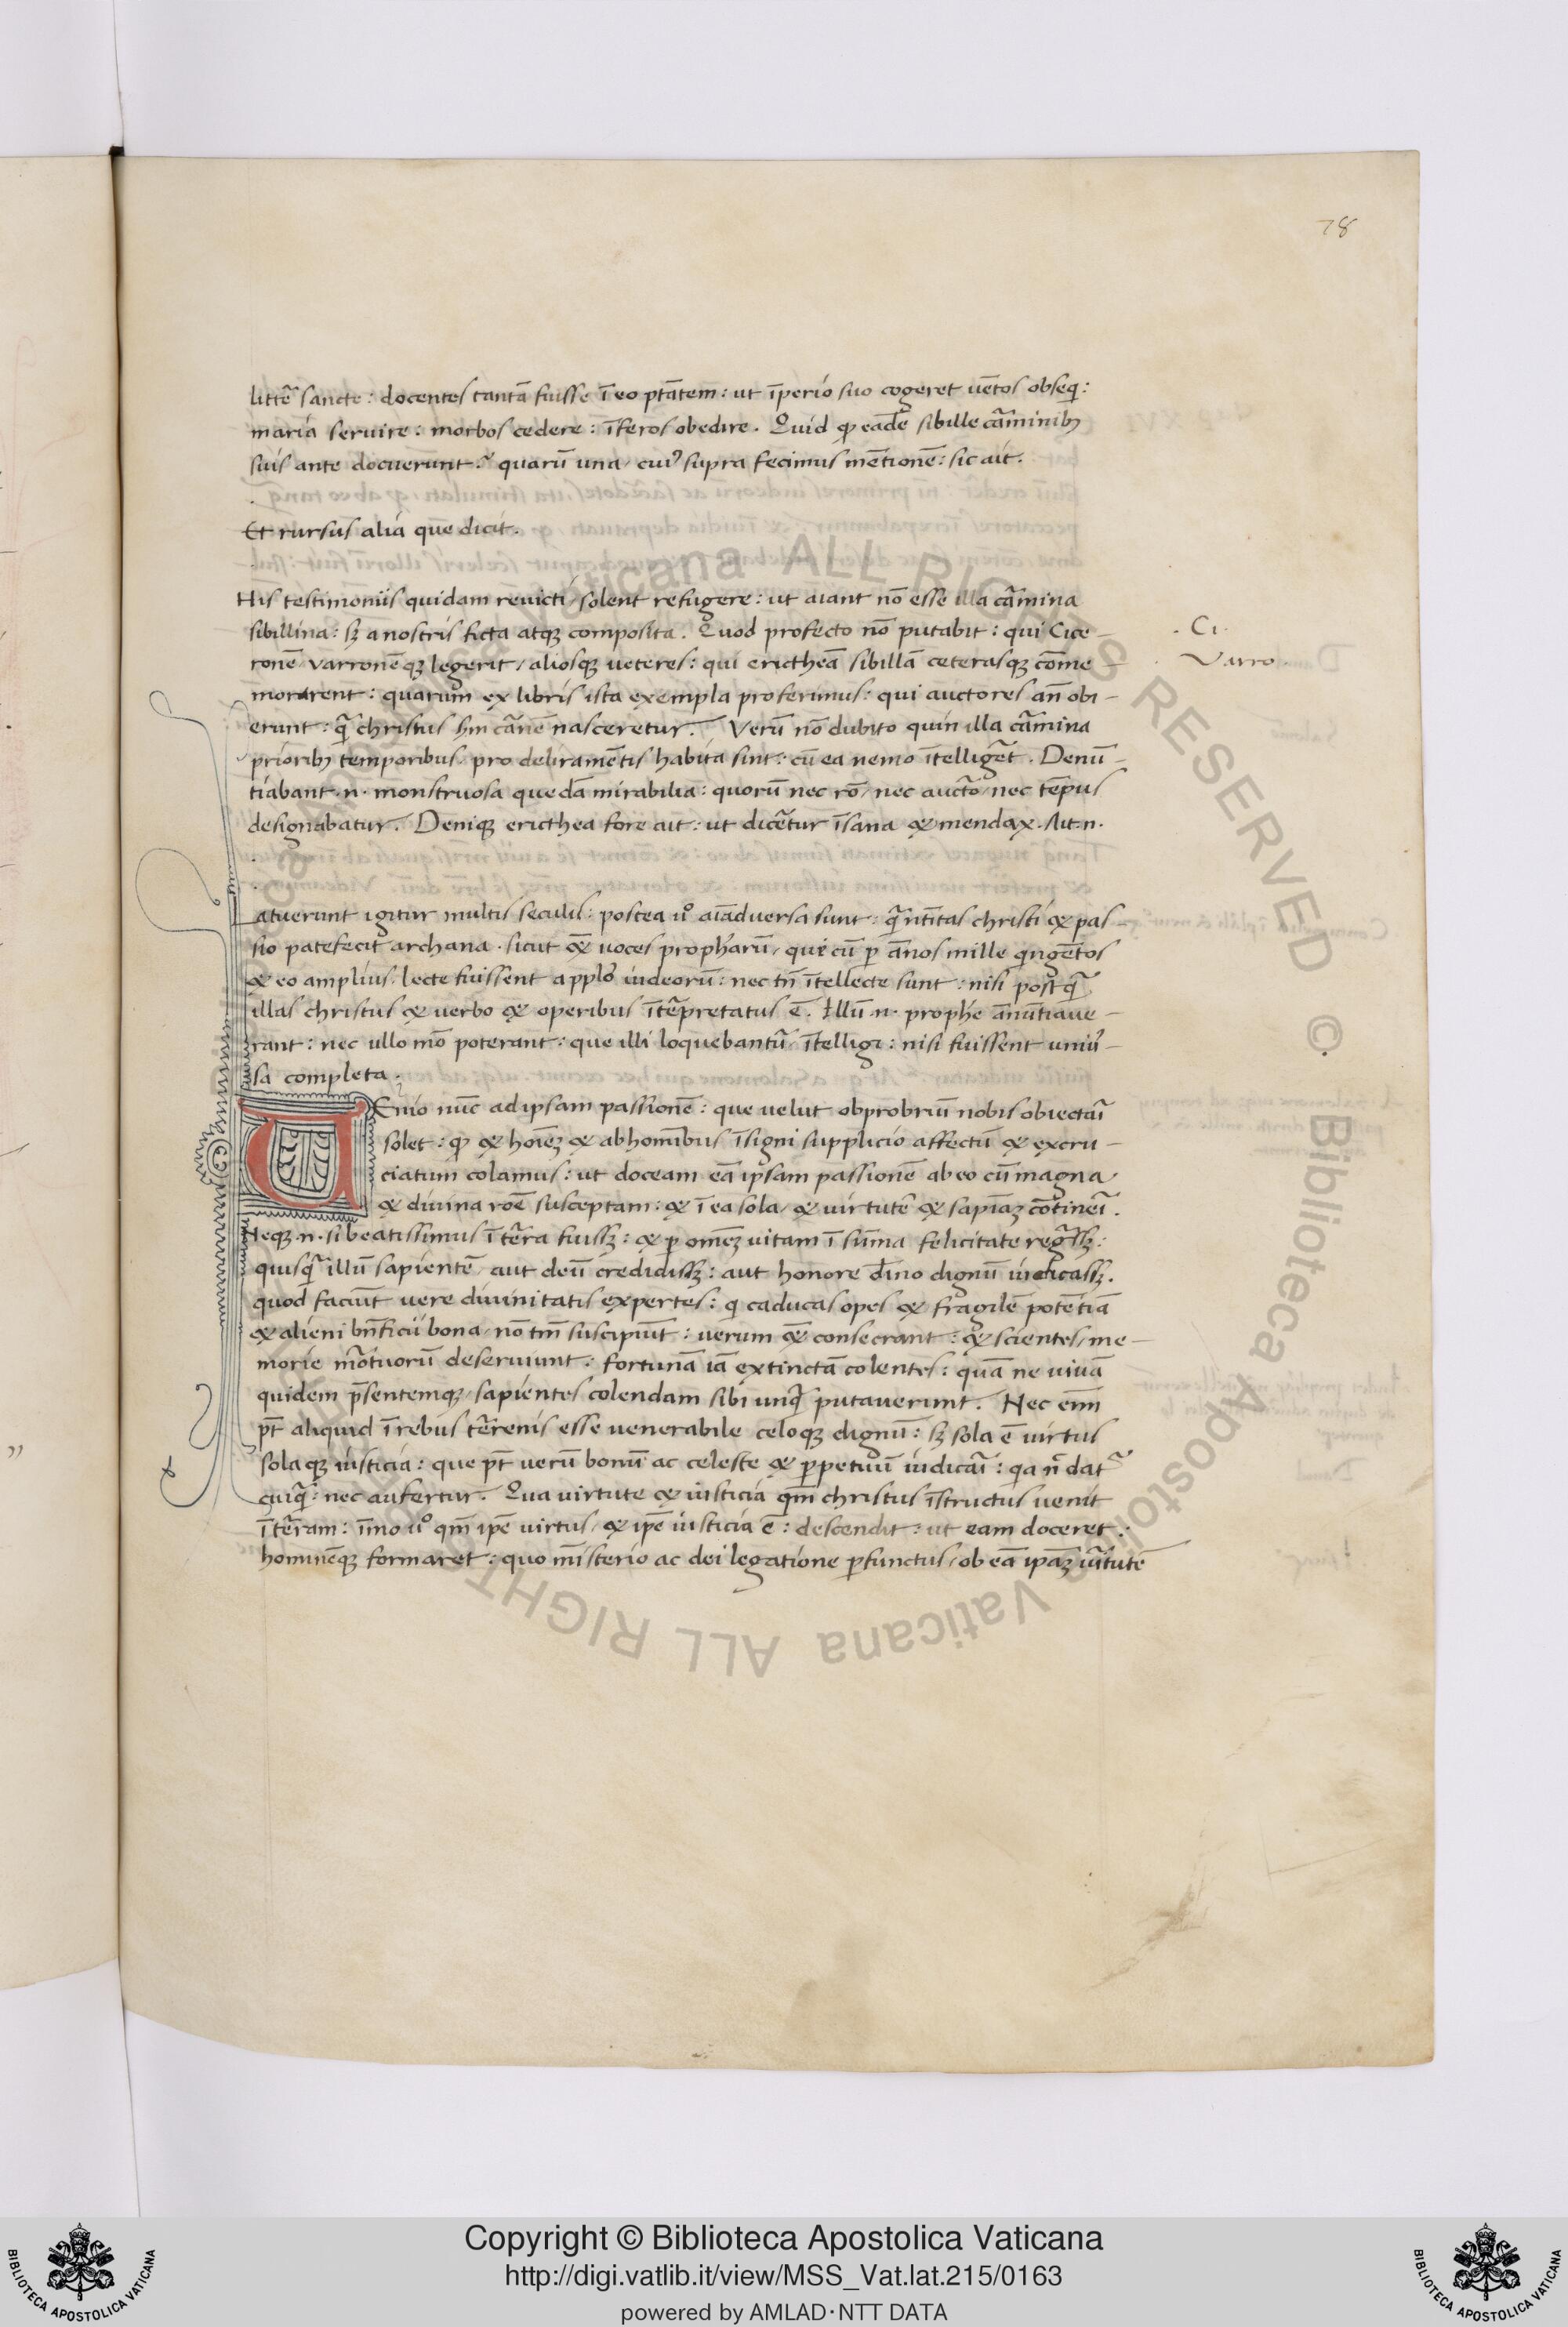 78
litteͬ sancte : docentes tantā fuisse ī eo ptātem : ut īperio suo cogeret uētos obseq :
maria seruire : morbos cedere : īferos obedire . Quid ꝙ eadē sibille cãminibꝫ
suis ante docuerunt . quarū una / cuiꝰ supra fecimus mētionē : sic ait .
Et rursus alia que dicit .
His testimoniis quidam reuicti / solent refugere : ut aiant nō esse illa cãmina
sibillina : sꝫ a nostris ficta atqꝫ composita . Quod profecto nō putabit : qui Cice –
ronē / varronēqꝫ legerit / aliosqꝫ ueteres : qui erictheā sibillā ceterasqꝫ cōme –
morarent : quarum ex libris ista exempla proferimus : qui auctores an̄ obi –
erunt : q̃ christus hm cãnē nasceretur . Verū nō dubito quin illa cãmina
prioribꝫ temporibus / pro deliramētis habita sint : cū ea nemo ītelligẽt . Denū –
tiabant .n. monstruosa quedā mirabilia : quorū nec rō / nec aucto / nec tēpus
designabatur . Denique ericthea fore ait : ut dicẽtur īsana & mendax . Ait .n.
atuerunt igitur multis seculis : postea uº aīaduersa sunt : q̃ n̄titas christi & pas –
sio patefecit archana . sicut & uoces propharū / que cū ꝑ ānos mille qngētos
& eo amplius / lecte fuissent a pplo iudeorū : nec tn̄ ītellecte sunt : nisi postq̃
illas christus & uerbo & operibus ītẽpretatus ē . Illū .n. prophe ānūtiaue –
rant : nec ullo mō poterant : que illi loquebantur ītelligi : nisi fuissent uniuꝰ –
sa completa .
VEnio nūc ad ipsam passionē : que uelut obprobriū nobis obiectaī
solet : ꝙ & hoīeꝫ & ab hominibus īsigni supplicio affectū & excru –
ciatum colamus : ut doceam eā ipsam passionē ab eo cū magna
& diuina roē susceptam : & ī ea sola / & uirtutē & sapiāꝫ cōtineī .
Neqꝫ .n. si beatissimus ī tẽra fuissꝫ : & ꝑ omeꝫ uitam ī sūma felicitate regãssꝫ :
quisq̃ illū sapientē / aut deū credidissꝫ : aut honore dīno dignū iudicassꝫ .
quod faciūt uere diuinitatis expertes : q caducas opes & fragilē potētiā
& alieni bn̄ficii bona / nō tm̄ suscipiūt : uerum & consecrant : & scientes / me –
morie mõtuorū deseruiunt : fortunā iā extinctā colentes : quā ne uiuā
quidem p̄sentemqꝫ / sapientes colendam sibi unq̃ putauerunt . Nec enim
pt̄ aliquid ī rebus tẽrenis esse uenerabile celoqꝫ dignū : sꝫ sola ē uirtus
solaqꝫ iusticia : que pt̄ uerū bonū ac celeste & ꝑpetuū iudicaī : qa n̄ dat͂
cuiq̃ : nec aufertur . Qua uirtute & iusticia qm̄ christus īstructus uenit
ī tẽram : īmo uº qm̄ ipē uirtus / & ipē iusticia ē : descendit : ut eam doceret .
hominēqꝫ formaret : quo mīsterio ac dei legatione ꝑfunctus / ob eā ipāꝫ uĩtutē
. Ci .
Varro .
Biblioteca Apostolica Vaticana ALL RIGHTS RESERVED ©
Copyright © Biblioteca Apostolica Vaticana
http://digi.vatlib.it/view/MSS_Vat.lat.215/0163
powered by AMLAD·NTT DATA
BIBLIOTECA APOSTOLICA VATICANA
BIBLIOTECA APOSTOLICA VATICANA